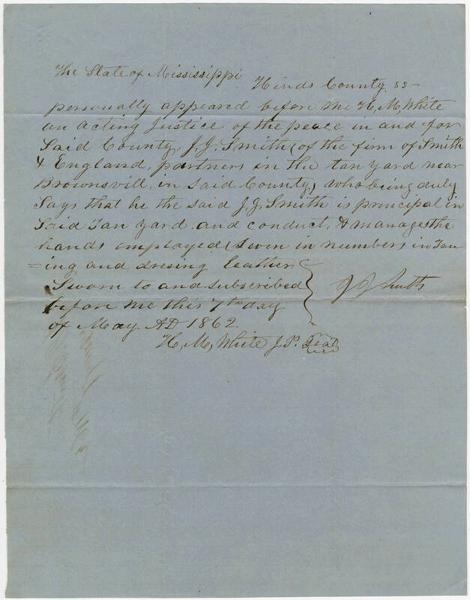 The State of Mississippi
Hinds County ss
personally appeared before me H, M, White
an Acting Justice of the peace in and for
Said County, J. J. Smith, (of the firm of Smith
& England, partners in the tan yard near
Brownsvill, in Said County, who being duly
Says that he the said J. J. Smith is principal in
Said Tan Yard and conduct, & manages the
hands employed, Seven in numbers in Tan
=ing and dresing leather
Sworn to and subscribed
before me this 7th day
of May AD 1862.
J J Smith
H, M, White J. P. Seal